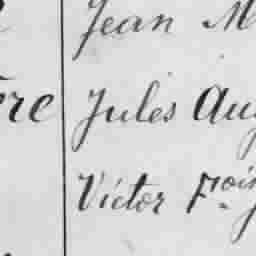 Jean M
ère Jules Aug
Victor F.oin